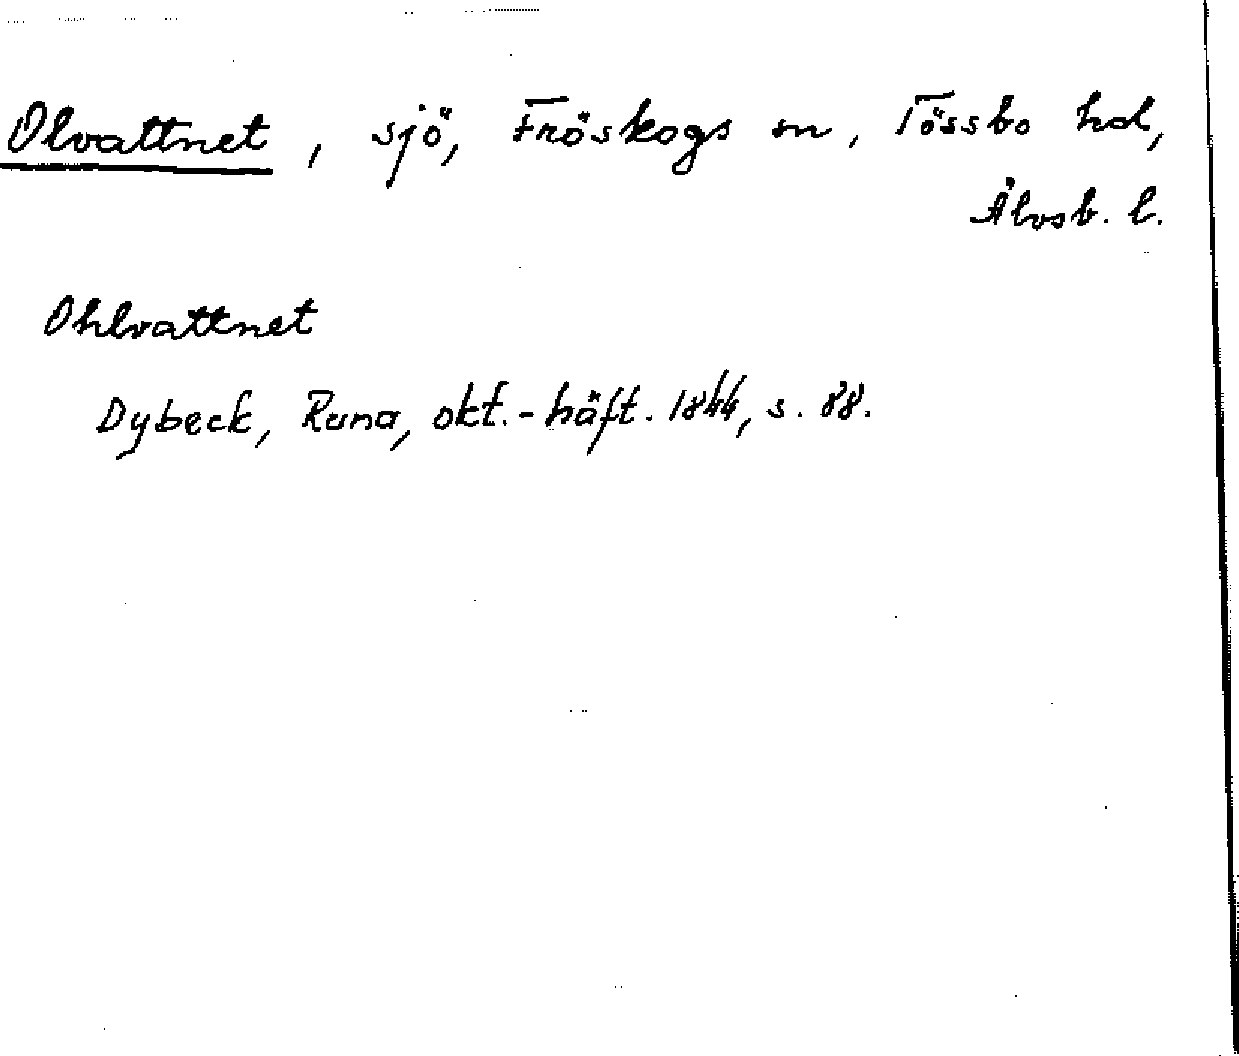 Olvattnet, sjö, Fröskogs sn, Tössbo hd,
Älvsb. l.
Ohlvattnet
Dybeck, Runa, okt.-häft. 1844, s. 88.